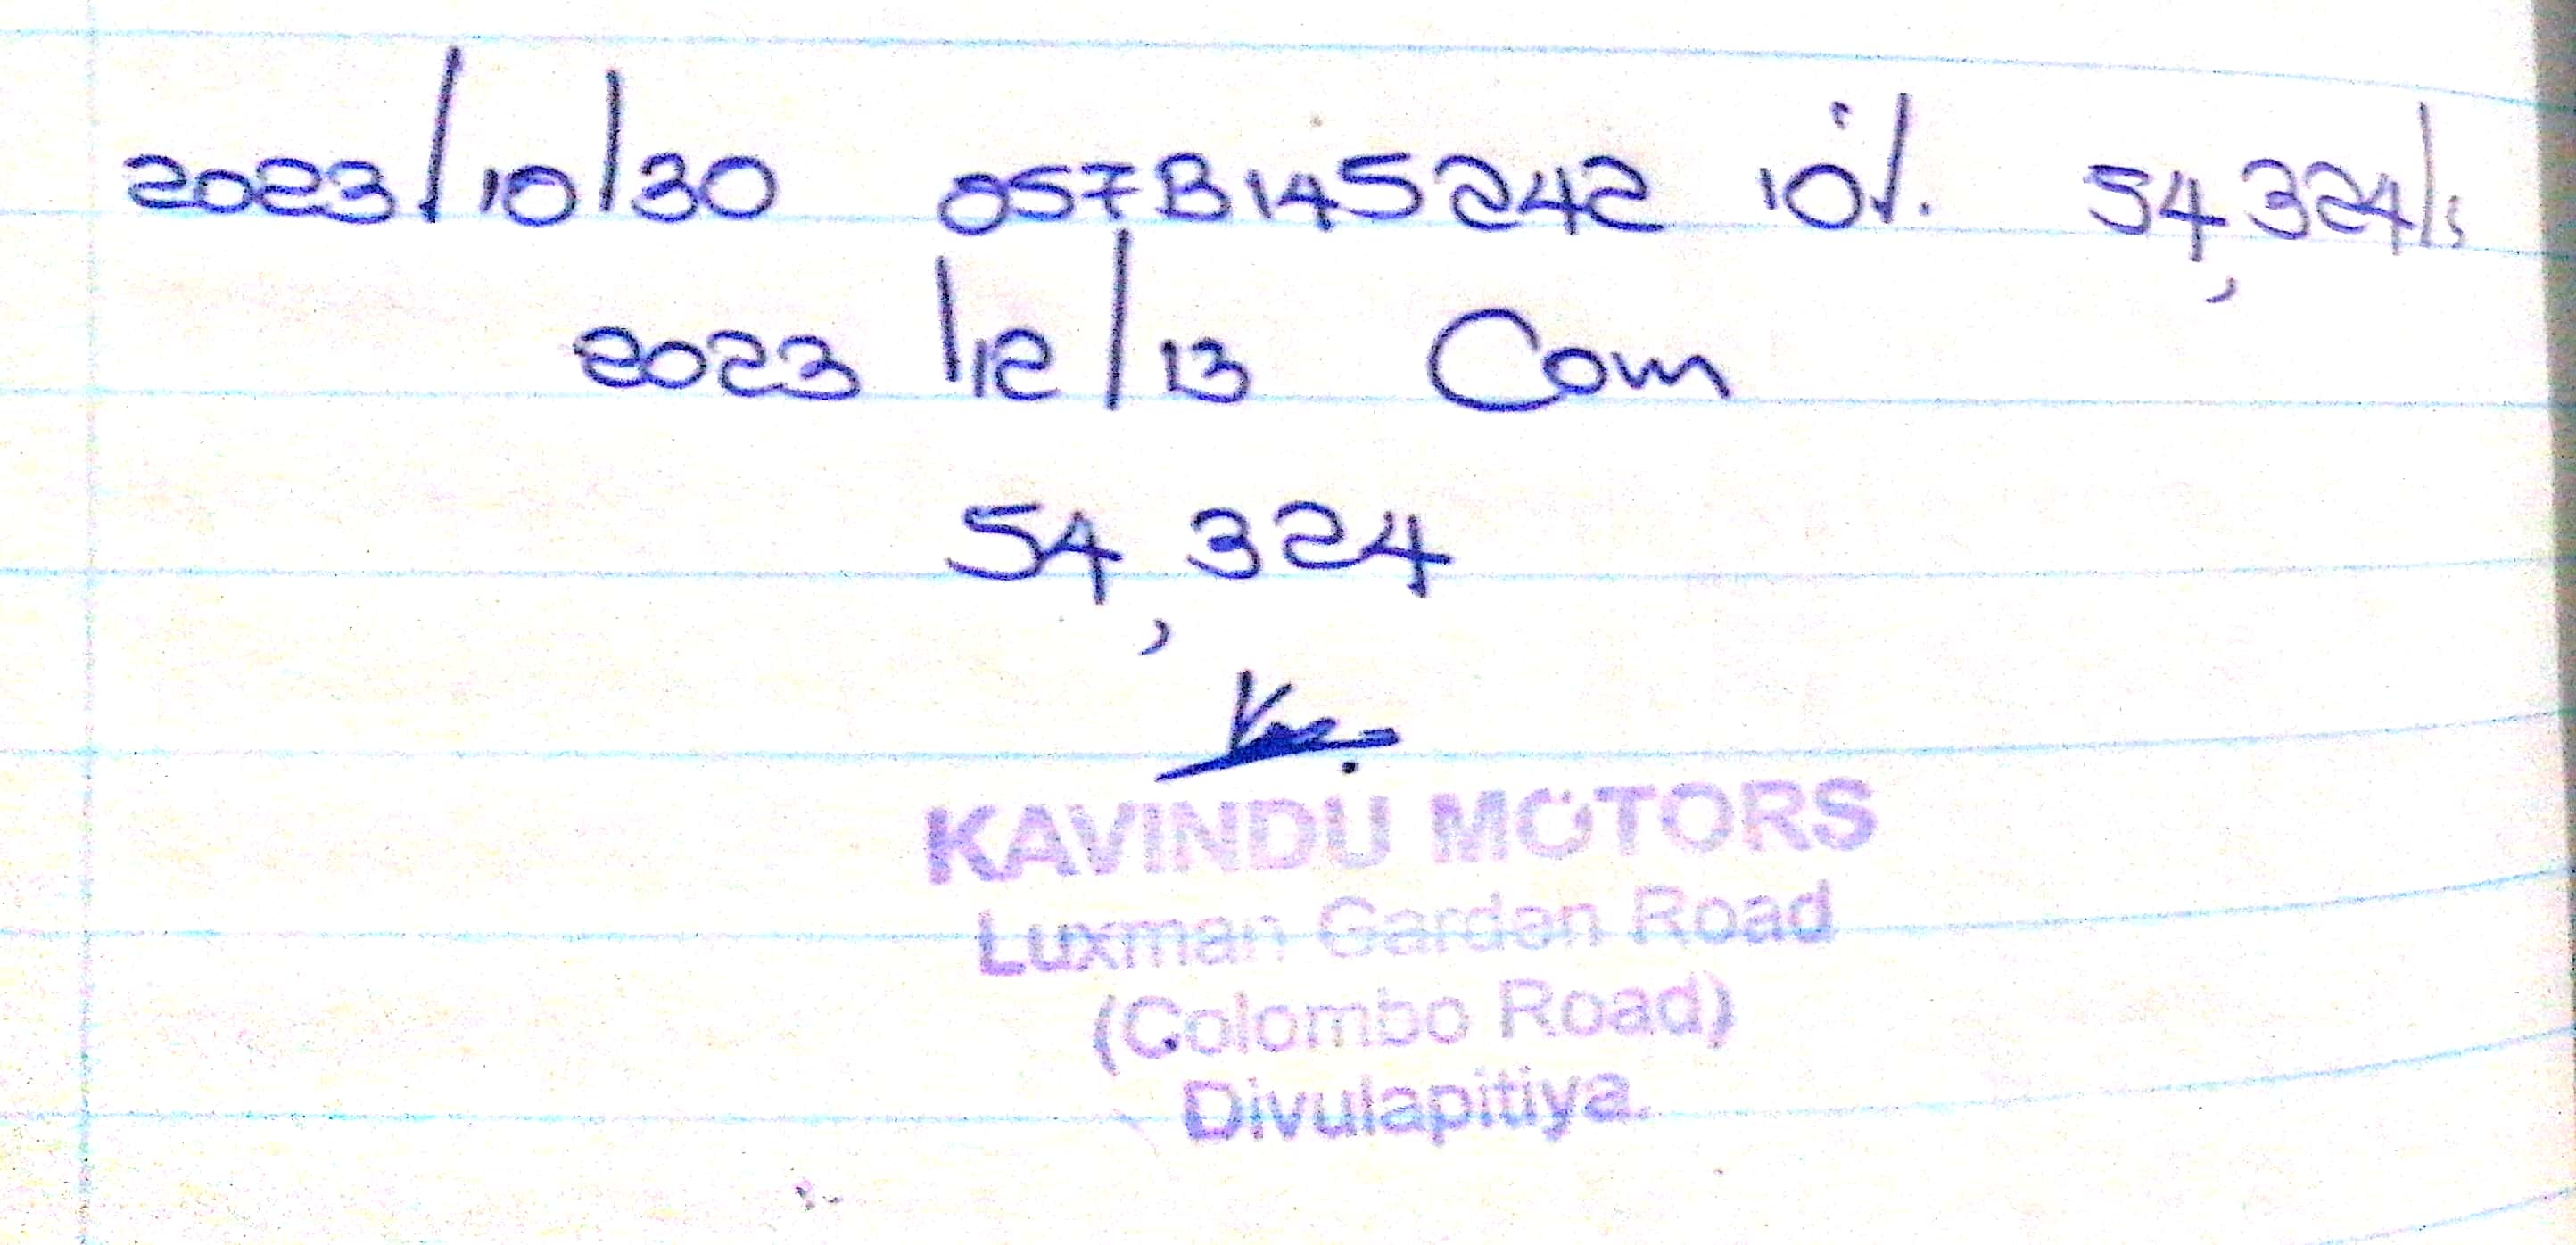 2023/10/30 057B145242 10%. 54,324/=
2023/12/13 Com
54,324
KAVINDU MOTORS
Luxman Garden Road
(Colombo Road)
Divulapitiya.